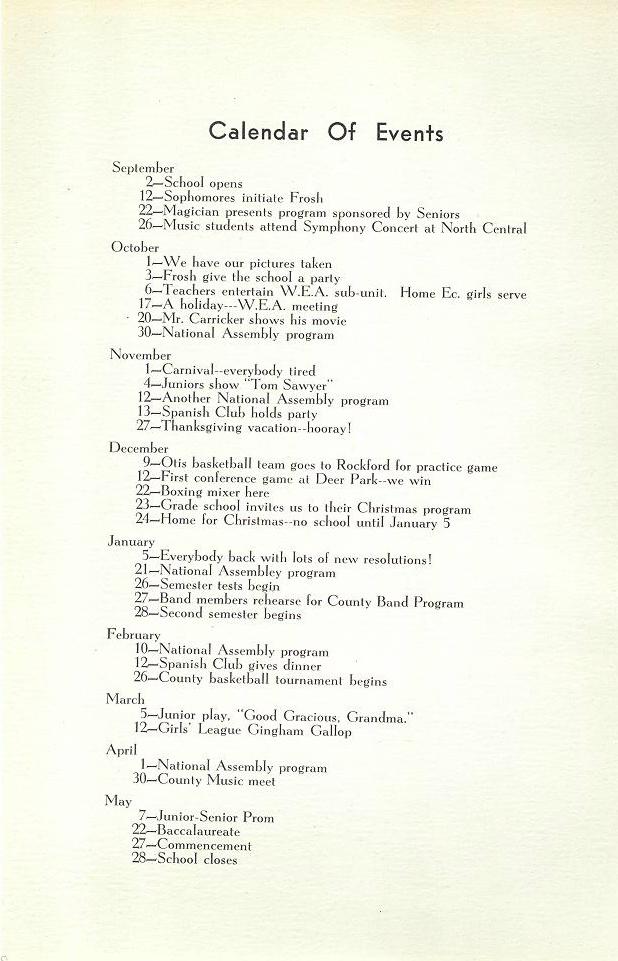 Calendar Of Events
September
2—School opens
12—Sophomores initiate Frosh
22—Magician presents program sponsored by Seniors
26—Music students attend Symphony Concert at North Central
October
1—We have our pictures taken
3—Frosh give the school a party
6—Teachers entertain W.E.A. sub-unit. Home Ec. girls serve
17—A holiday---W.E.A. meeting
20—Mr. Carricker shows his movie
30—National Assembly program
November
1—Carnival--everybody tired
4—Juniors show "Tom Sawyer"
12—Another National Assembly program
13—Spanish Club holds party
27—Thanksgiving vacation--hooray!
December
9—Otis basketball team goes to Rockford for practice game
12—First conference game at Deer Park--we win
22—Boxing mixer here
23—Grade school invites us to their Christmas program
24—Home for Christmas--no school until January 5
January
5—Everybody back with lots of new resolutions!
21—National Assembley program
26—Semester tests begin
27—Band members rehearse for County Band Program
28—Second semester begins
February
10—National Assembly program
12—Spanish Club gives dinner
26—County basketball tournament begins
March
5—Junior play, "Good Gracious, Grandma."
12—Girls' League Gingham Gallop
April
1—National Assembly program
30—County Music meet
May
7—Junior-Senior Prom
22—Baccalaureate
27—Commencement
28—School closes